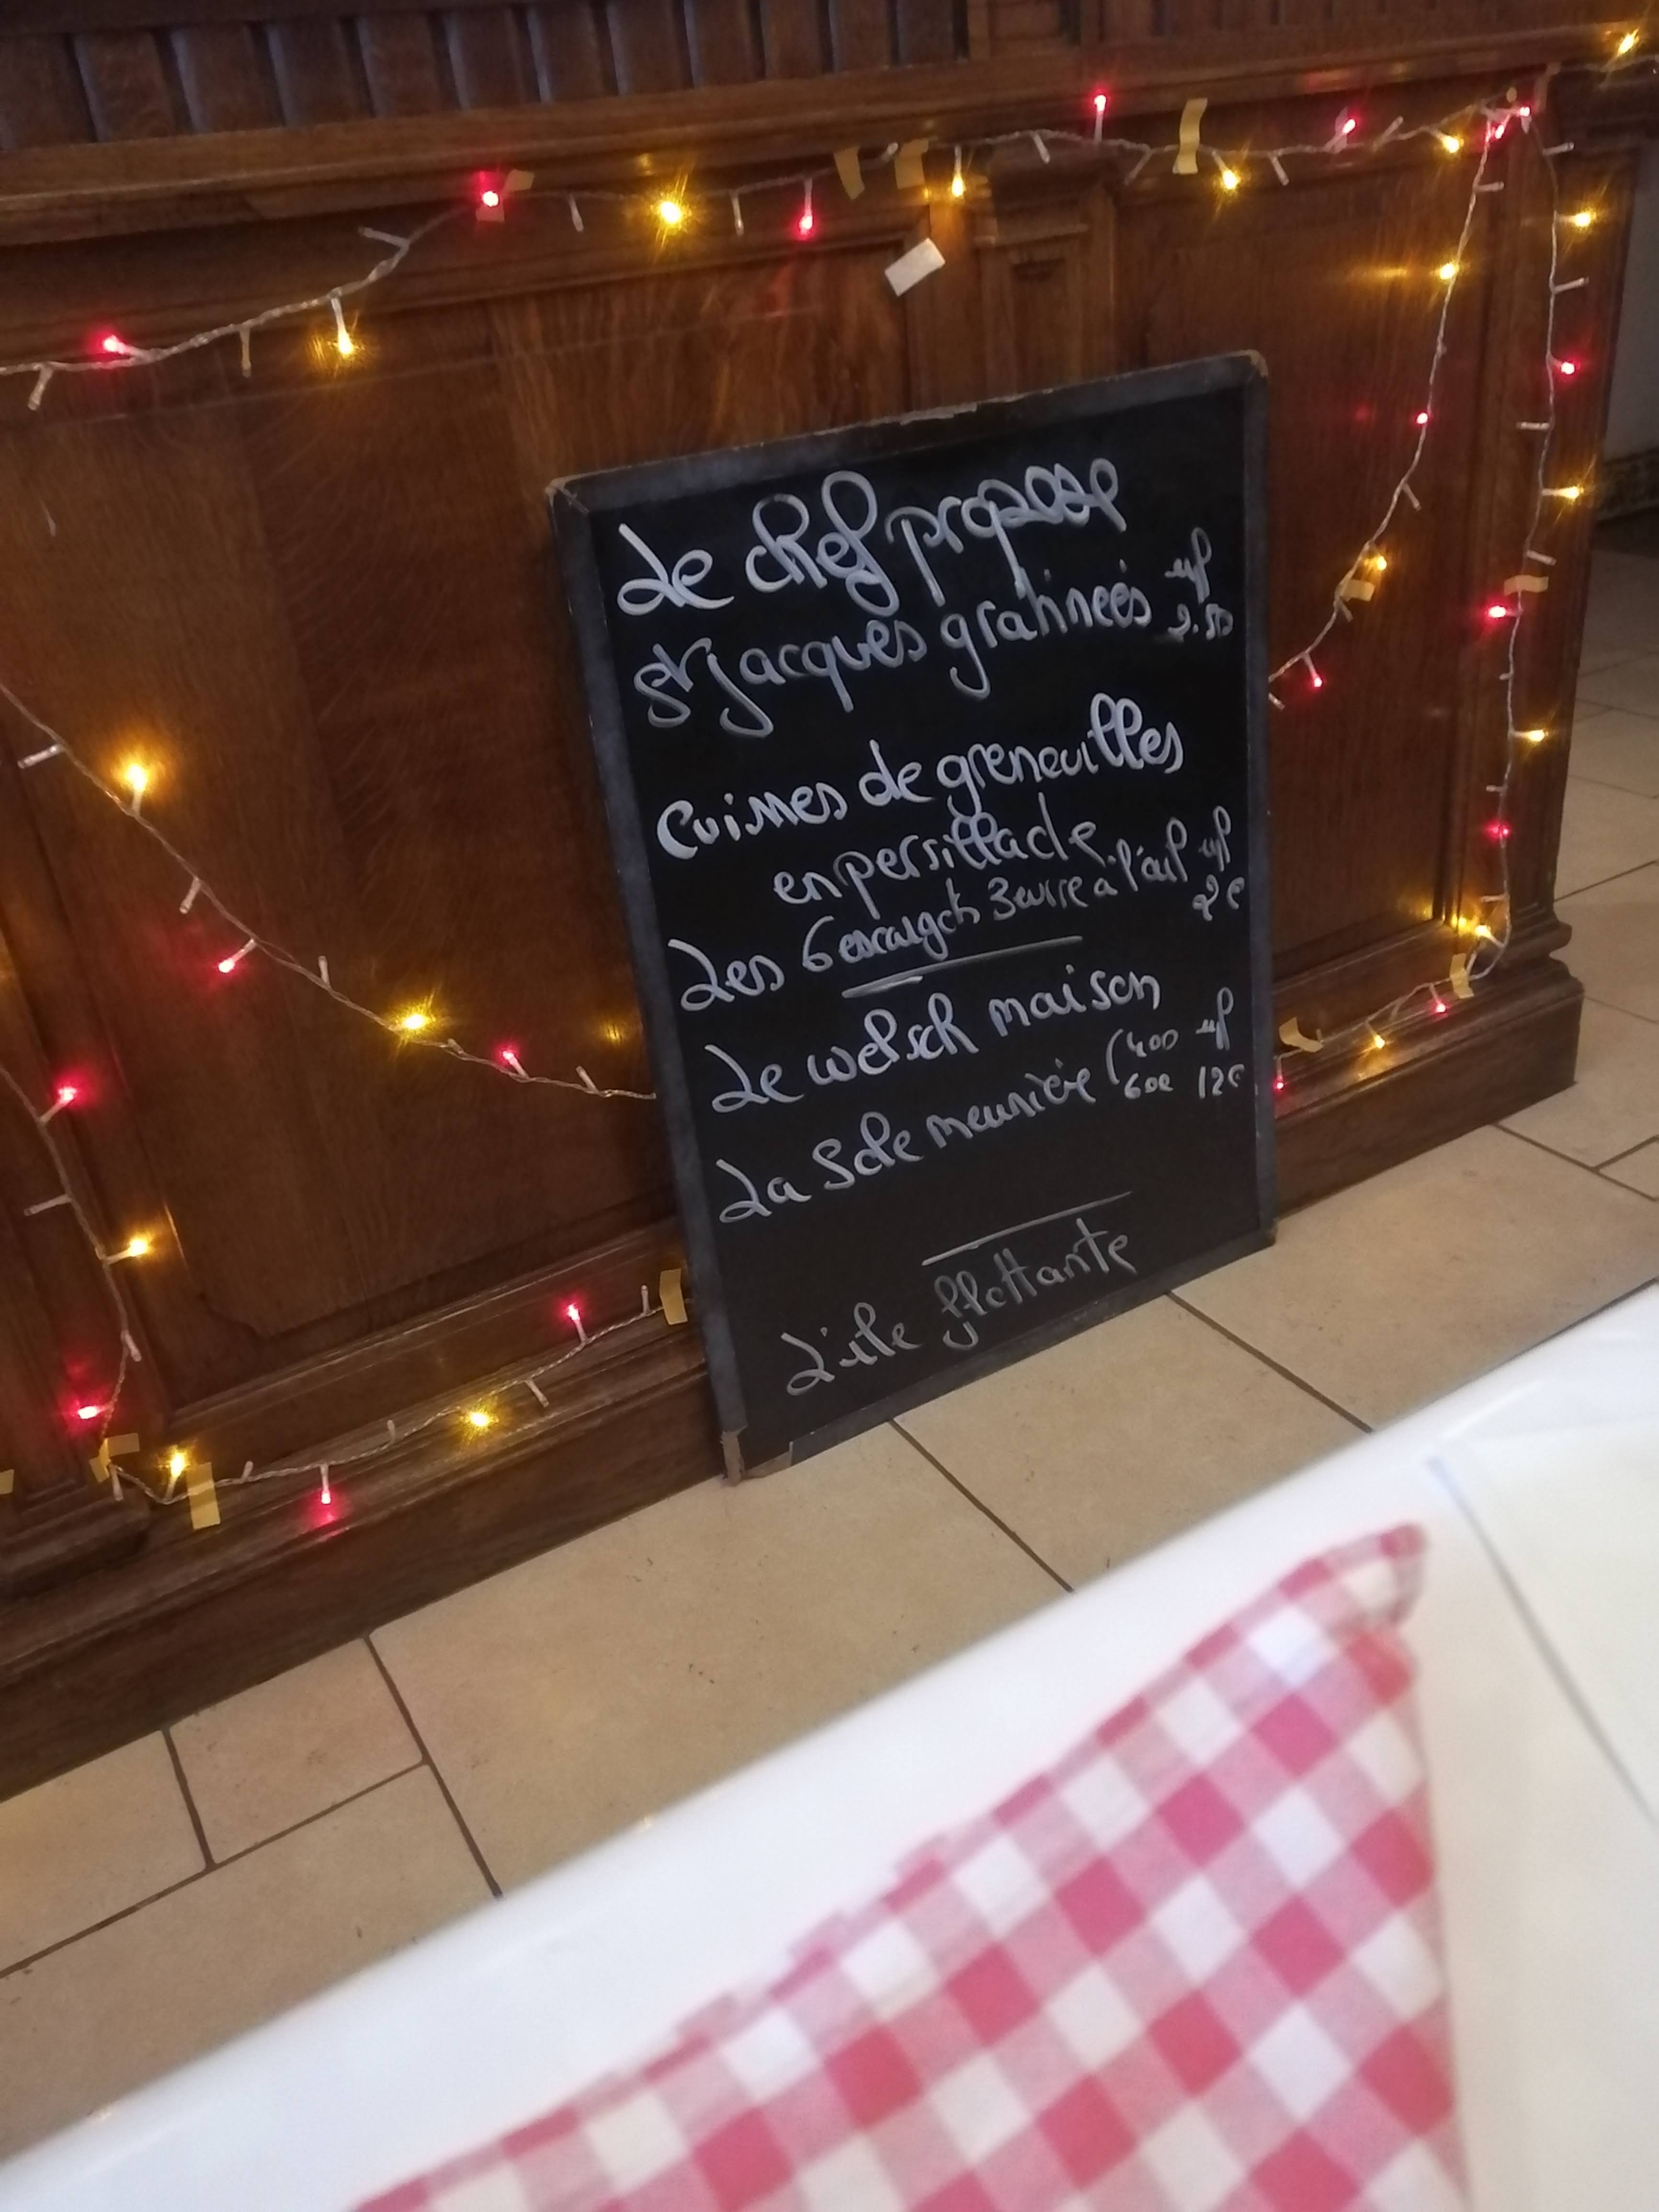 Le chef propose
St Jacques gratinées sup
2.50
Cuisses de greneuilles
en persillade
Les 6 escargots Beurre a l'ail sup
2€
Le welsch maison
La Sole meunière (400 sup
600 12€
L'ile flottante